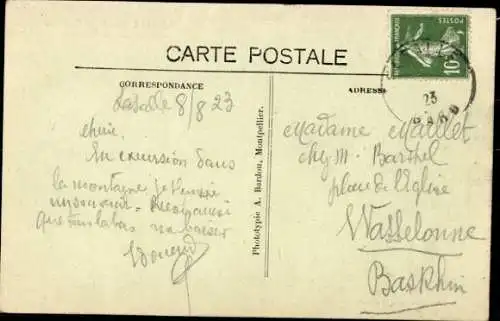 CARTE POSTALE
POSTES
10
CORRESPONDANCE
ADRESSE
Lasalle 8/8 23
23
GARD
cherie.
En excursion dans
la montagne je t'envoie
que tous là bas un baiser
Edouard
Phototypie A. Bardou, Montpellier.
Madame Maillet
chez M. Barthel
place de l'Eglise
Wasselonne
Bas Rhin